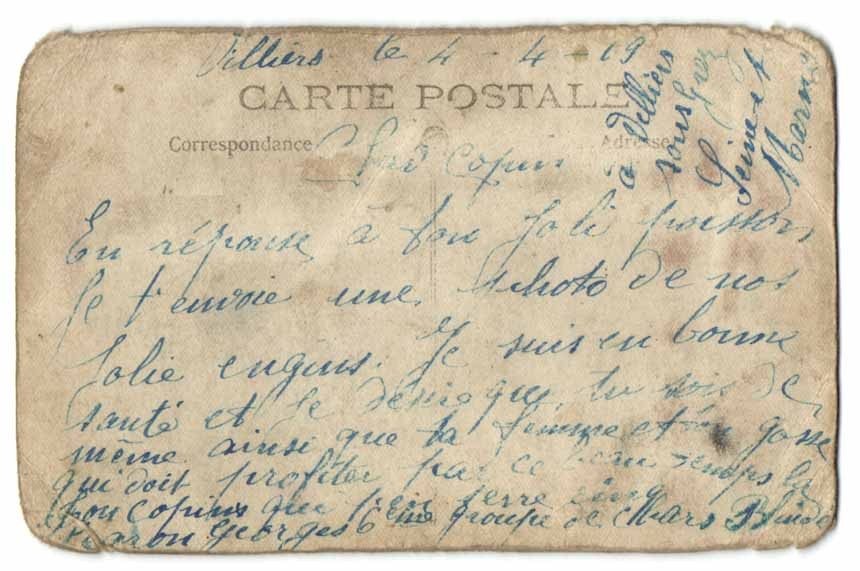 Villiers le 4 - 4 - 19
à Villiers
sous Grez
Seine et
Marne
CARTE POSTALE
Correspondance
Adresse
Cher copin
En réponse à ton joli poisson
Je t'envoie une photo de nos
Jolie engins. Je suis en bonne
santé et je désire que tu sois de
même ainsi que ta femme et ton gosse
qui doit profiter par ce beau temps la
ton copins qui t'en serre cinq
Georges 6ème groupe de Chars Blindé